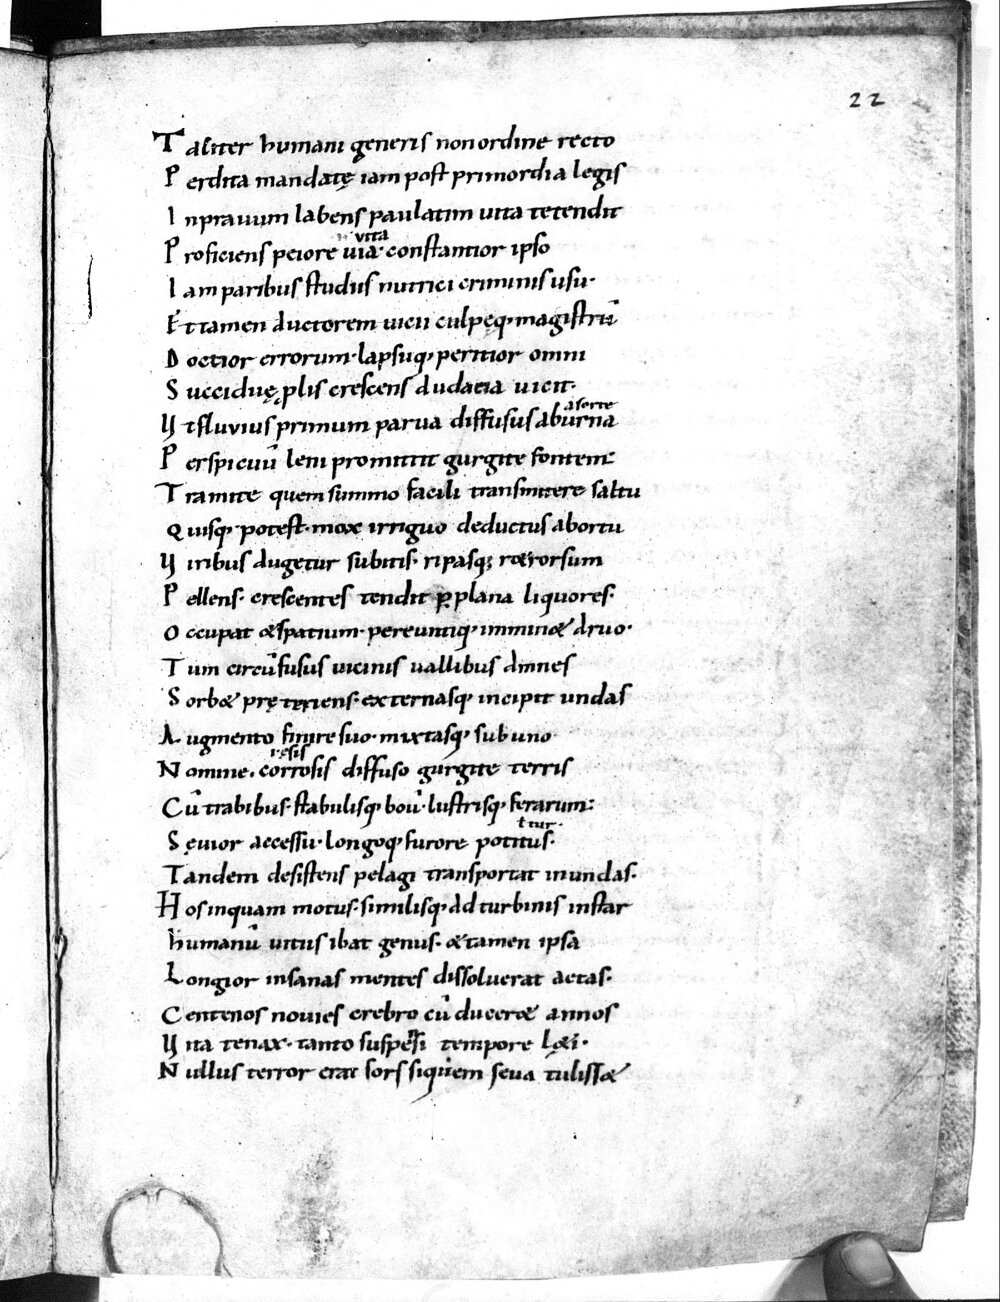 22
Taliter humani generis non ordine recto
Perdita mandatę iam post primordia legis
Inprauum labens paulatim uita tetendit
vita
Proficiens peiore uia· constantior ipso
Iam paribus studiis nutrici criminis usu·
Et tamen auctorem uicit culpęq· magistrū
Doctior errorum· lapsuq· peritior omni
Succiduę plis crescens audacia uicit·
a forte
Vt fluvius primum parua diffusus aburna
Perspicuū leni promittit gurgite fontem·
Tramite quem summo facili transmittere saltu
Quisq· potest· mox irriguo deductus abortu
Viribus augetur subitis· ripasq; r&rorsum
Pellens· crescentes tendit ꝑ plana liquores·
Occupat &spatium· pereuntiq· immin& aruo·
Tum circūfusus uicinis uallibus amnes
Sorb& prętęriens· externasq· incipit undas
Augmento finire suo· mixtasq· sub uno
resis
Nomine· corrosis diffuso gurgite terris
Cū trabibus· stabulisq· boū· lustrisq· ferarum·
t tur·
Sęuior accessu· longoq· furore potitus·
Tandem desistens pelagi transportat inundas·
Hos inquam motus· similisq· ad turbinis instar
humanū uitiis ibat genus· &tamen ipsa
Longior insanas mentes dissoluerat aetas·
Centenos novies crebro cū ducer& annos
Vita tenax· tanto suspensi tempore l&i·
Nullus terror erat sors siquem seua tuliss&